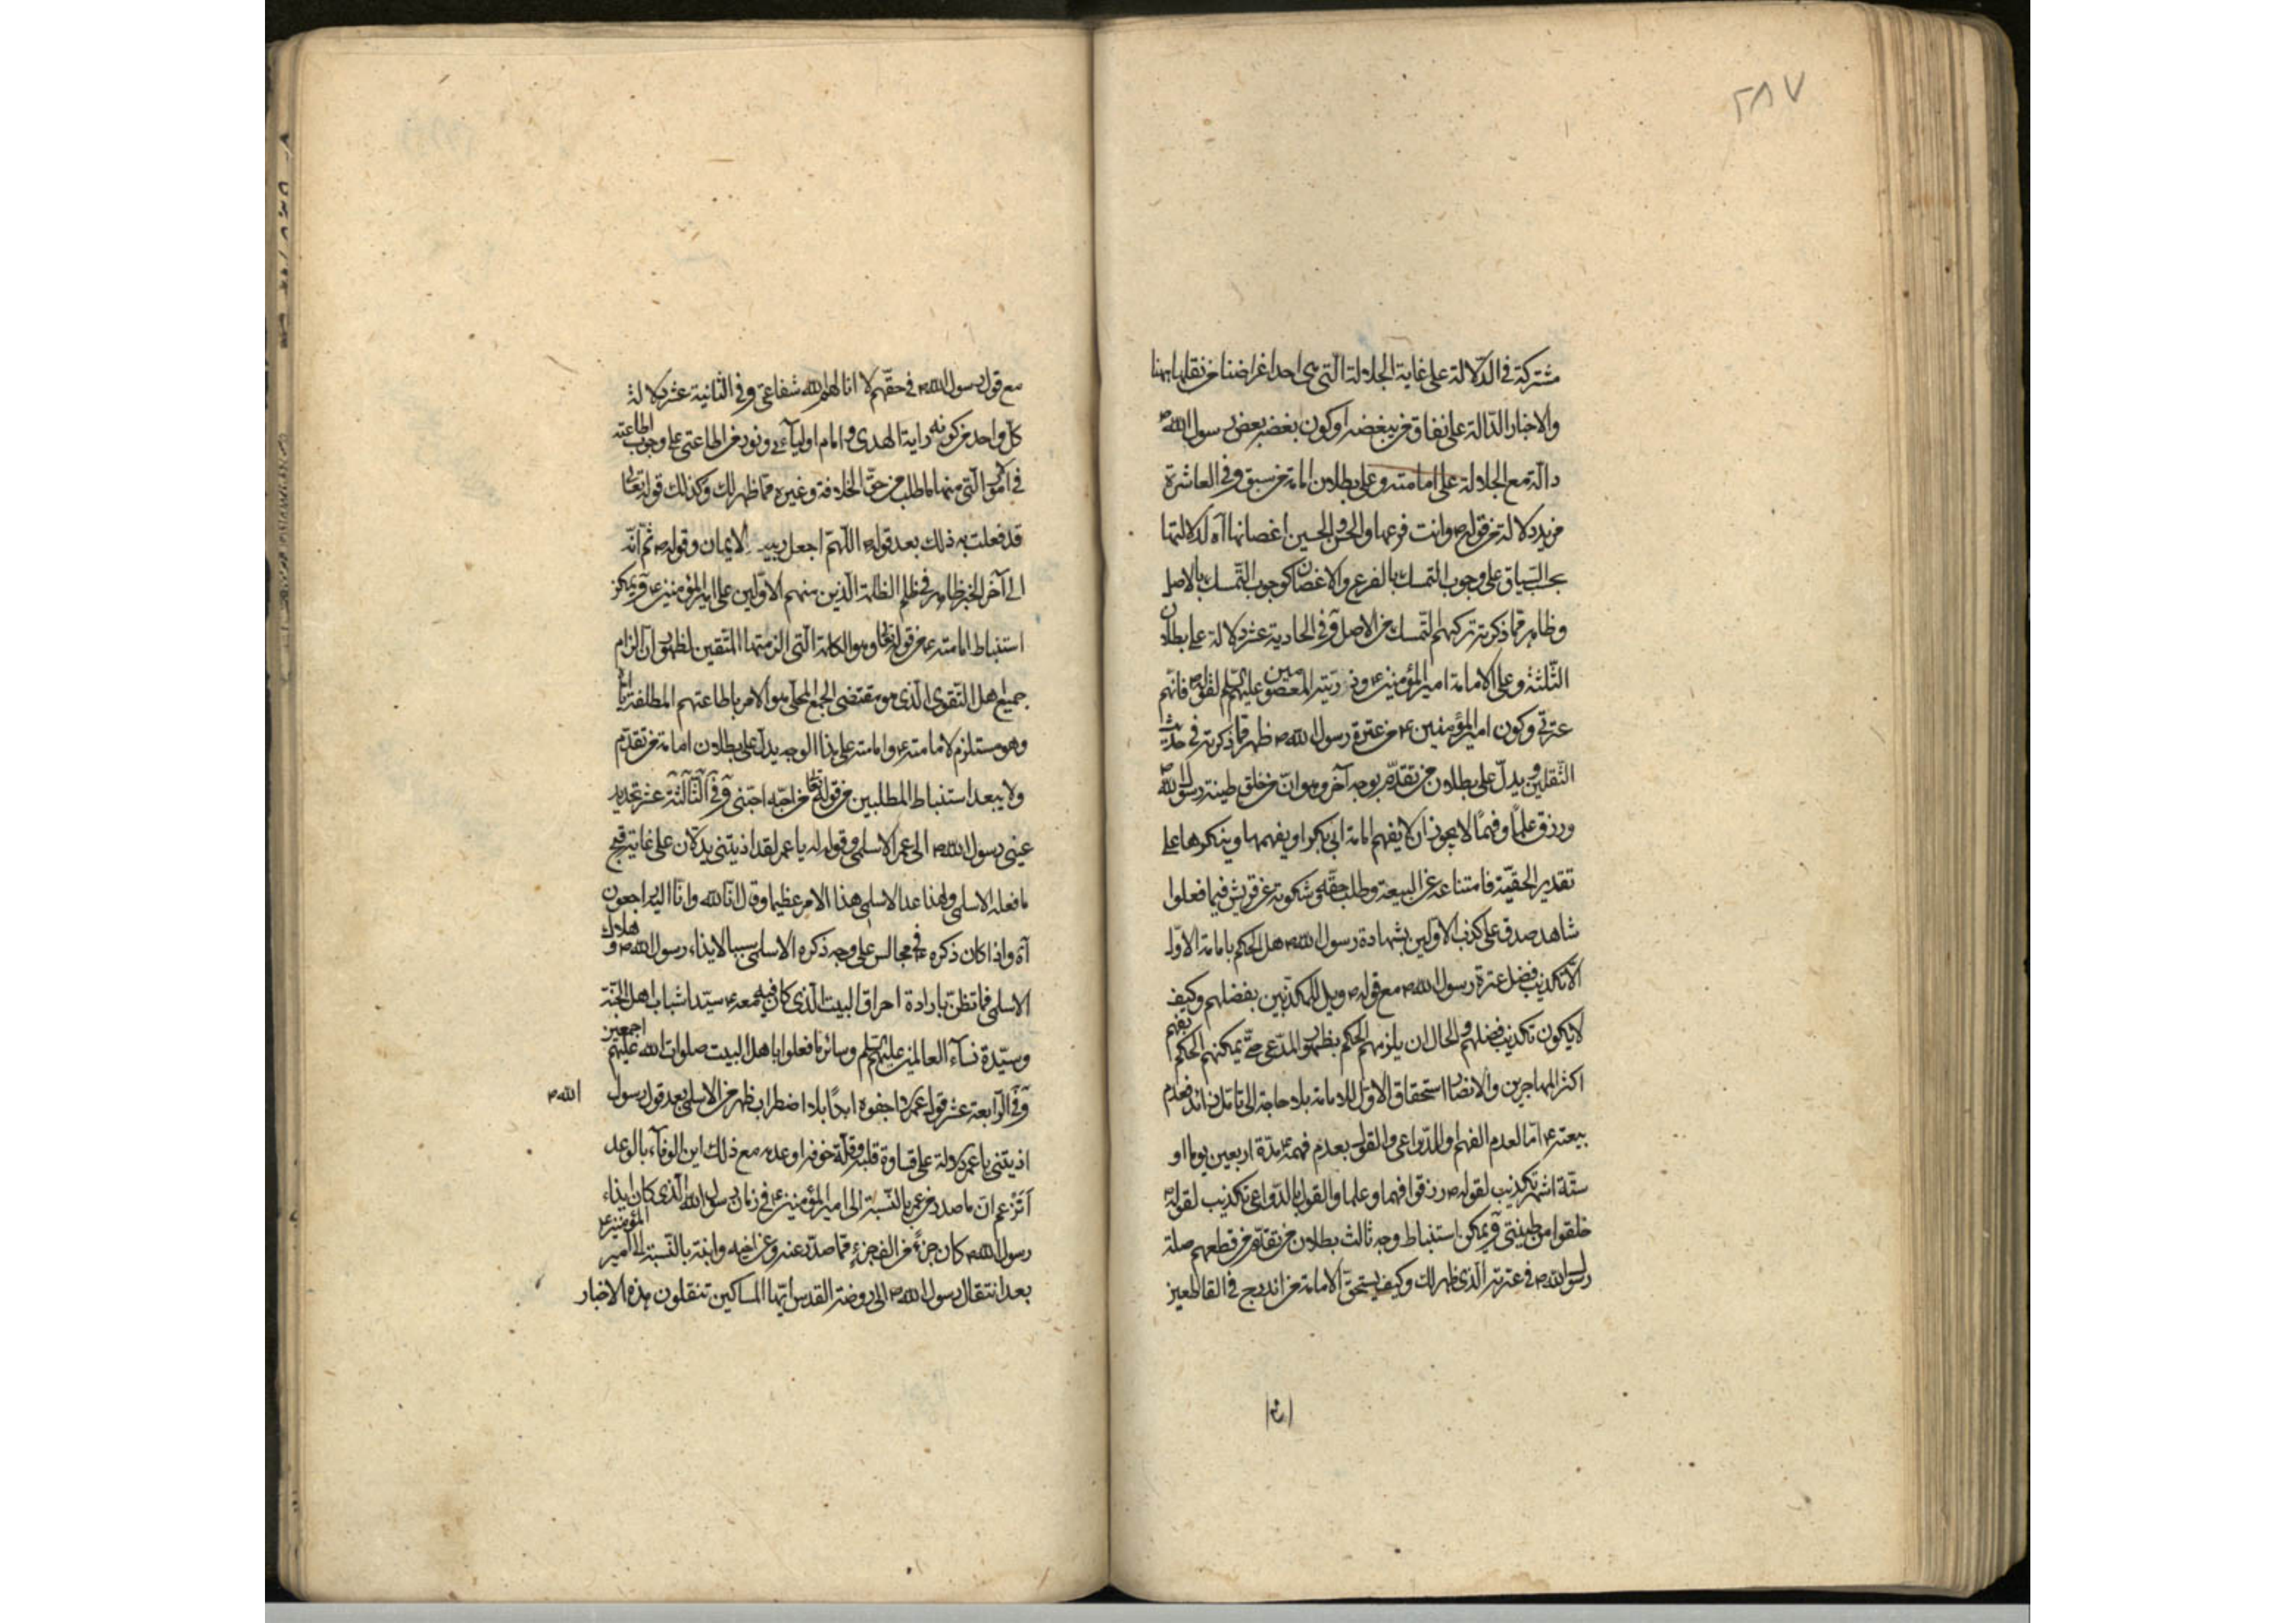 ٢٨٧
مشتركة في الدّلالة على غاية الجلالة الّتي هي احد اغراضنا من نقلها ههنا
والاخبار الدّالة على نفاق من يبغضه او كون بغضه بغض رسول الله ص
دالّة مع الجلالة على امامته وعلى بطلان امامة من سبق وفي العاشرة
مزيد دلالة من قوله ص وانت فرعها والحسن والحسين اغصانها آه لدلالتها
بحسب السّياق على وجوب التمسك بالفرع والاغصان كوجوب التّمسك بالاصل
وظاهر ممّا ذكرته تركهم التّمسك من الاصل وفي الحادية عشر دلالة على بطلان
الثّلثة وعلى الامامة امير المؤمنين ع وذريّته المعصومين عليهم السّلم لقوله ص فانّهم
عترتي وكون امير المؤمنين ع من عترة رسول الله ص ظهر ممّا ذكرته في حديث
الثّقلين ويدلّ على بطلان من تقدّم بوجه آخر وهو انّ من خلق طينة رسول الله ص
ورزق علماً وفهماً لا يجوز ان لا يفهم امامة ابي بكر او يفهمها وينكرها على
تقدير الحقيّة فامتناعه عن البيعة وطلب حقّه وشكوته عن قريش فيما فعلوا
شاهد صدق على كذب الاوّلين بشهادة رسول الله ص هل الحكم بامامة الاوّل
الّا تكذيب فضل عترة رسول الله ص مع قوله ص ويل للمكذّبين بفضلهم وكيف
لا يكون تكذيب فضلهم والحال ان يلزمهم الحكم بظهور المدّعى حتّى يمكنهم الحكم بفهم
اكثر المهاجرين والانصار استحقاق الاوّل للامامة بلا حاجة الى تامّل زائد فعدم
بيعته ع امّا لعدم الفهم او للدّواعي والقول بعدم فهمه ع مدّة اربعين يوما او
ستّة اشهر تكذيب لقوله ص رزقوا فهما وعلما والقول بالدّواعي تكذيب لقوله ص
خلقوا من طينتي ويمكن استنباط وجه ثالث بطلان من تقدّم من قطعهم صلة
رسول الله ص في عترته الّذي ظهر لك وكيف يستحقّ الامامة من اندرج في القاطعين
مع قول رسول الله ص في حقّهم لا انالهم الله شفاعتي وفي الثّانية عشر دلالة
كلّ واحد من كونه راية الهدى وامام اوليآئي ونور من اطاعني على وجوب اطاعته
في امور الّتي منها المطلب من حقّ الخلافة وغيره ممّا ظهر لك وكذلك قوله تعالى
قد فعلت به ذلك بعد قوله ص اللّهمّ اجعل ربيعه الايمان وقوله ص ثمّ انّه
الى آخر الخبر ظاهر في ظلم الظلمة الّذين منهم الاوّلين على امير المؤمنين ع ويمكن
استنباط امامته ع من قوله تعالى وهو الكلمة الّتي الزمتها المتّقين لظهور ان الزام
جميع اهل التّقوى الّذي هو مقتضى الجمع المحلّى هو الامر باطاعتهم المطلقة ايّاه
وهو مستلزم لامامته ع وامامته على هذا الوجه يدلّ على بطلان امامة من تقدّم
ولا يبعد استنباط المطلبين من قوله تعالى من احبّه احبّني وفي الثّالثة عشر تحديد
عيني رسول الله ص الى عمر الاسلمي وقوله له يا عمر لقد اذيتني يدلّان على غاية قبح
ما فعله الاسلمي ولهذا عدّ الاسلمي هذا الامر عظيما وقال انّا لله وانّا اليه راجعون
آه واذا كان ذكره ع في مجالس على وجه ذكره الاسلمي سببا لايذاء رسول الله ص وهلاك
الاسلمي فما تظنّ بارادة احراق البيت الّذي كان فيه معه ع سيّدا شباب اهل الجنّة
وسيّدة نسآء العالمين عليهم السّلم وسائر ما فعلوا باهل البيت صلوات الله عليهم اجمعين
وفي الرّابعة عشر قول عمر لا اجفوه ابدًا بلا اضطراب ظهر من الاسلمي بعد قول رسول الله ص
اذيتني يا عمر دلالة على قساوة قلبه وقلّة خوفه او عدمه مع ذلك اين الوفآء بالوعد
اتزعم ان ما صدر من عمر بالنّسبة الى امير المؤمنين ع في زمان رسول الله الّذي كان ايذاء
رسول الله ص كان جزءً من الف جزءٍ ممّا صدر عنه وعن اخيه وابنة بالنّسبة الى امير المؤمنين ع
بعد انتقال رسول الله ص الى روضة القدس ايّها المساكين تنقلون هذه الاخبار